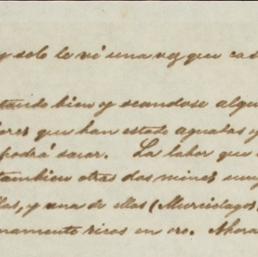 y solo le ví una vez que cas
tando bien y secandose algu
ores que han estado aguadas y
podrá sacar. La labor que
tambien otras dos minas muy
las, y una de ellas (Murcielagos)
namente ricos en oro. Ahora